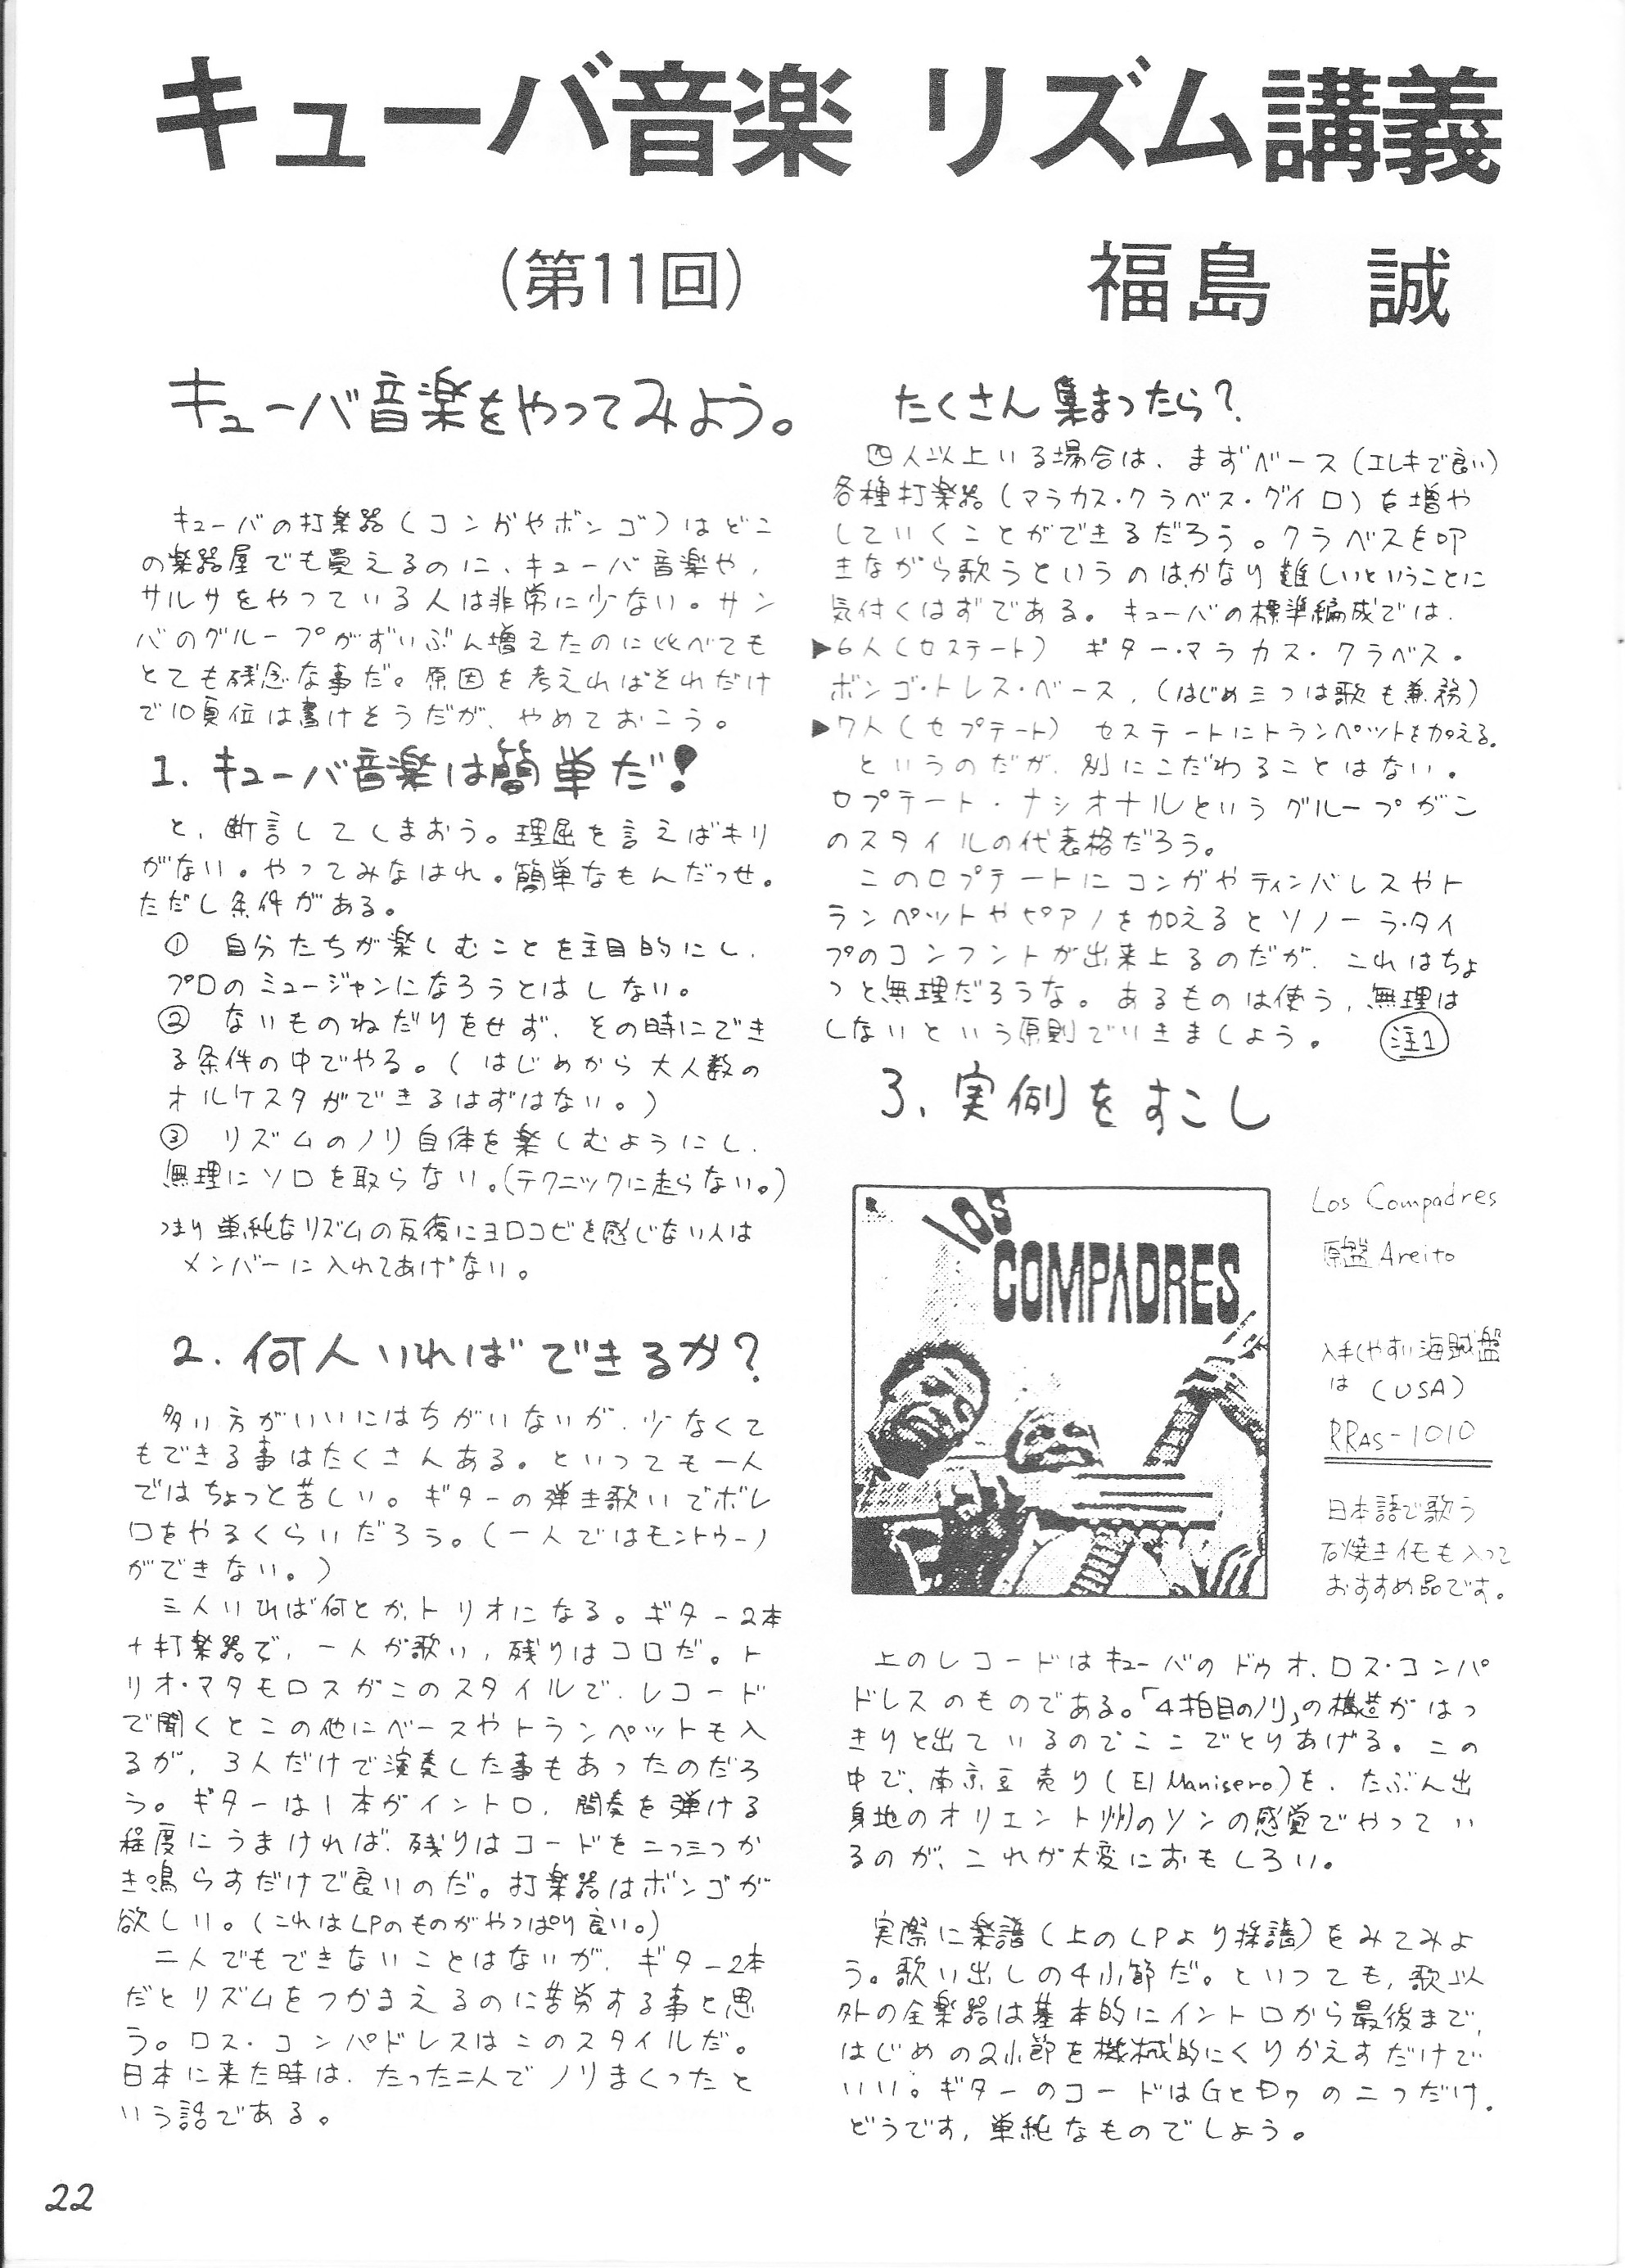 キューバ音楽 リズム講義
(第11回)
福島 誠
キューバ音楽をやってみよう。
キューバの打楽器(コンガやボンゴ)はどこ
の楽器屋でも買えるのに、キューバ音楽や、
サルサをやっている人は非常に少ない。サン
バのグループがずいぶん増えたのに比べても
とても残念な事だ。原因を考えればそれだけ
で10頁位は書けそうだが、やめておこう。
1. キューバ音楽は簡単だ!
と、断言してしまおう。理屈を言えばキリ
がない。やってみなはれ。簡単なもんだっせ。
ただし条件がある。
① 自分たちが楽しむことを主目的にし、
プロのミュージャンになろうとはしない。
② ないものねだりをせず、その時にでき
る条件の中でやる。(はじめから大人数の
オルケスタができるはずはない。)
③ リズムのノリ自体を楽しむようにし、
無理にソロを取らない。(テクニックに走らない。)
つまり単純なリズムの反復にヨロコビを感じない人は
メンバーに入れてあげない。
2. 何人いればできるか?
多い方がいいにはちがいないが、少なくて
もできる事はたくさんある。といっても一人
ではちょっと苦しい。ギターの弾き歌いでボレ
ロをやるくらいだろう。(一人ではモントゥーノ
ができない。)
三人いれば何とか、トリオになる。ギター2本
+打楽器で、一人が歌い、残りはコロだ。ト
リオ・マタモロスがこのスタイルで、レコード
で聞くとこの他にベースやトランペットも入
るが、3人だけで演奏した事もあったのだろ
う。ギターは1本がイントロ、間奏を弾ける
程度にうまければ、残りはコードを二つ三つか
き鳴らすだけで良いのだ。打楽器はボンゴが
欲しい。(これはLPのものがやっぱり良い。)
二人でもできないことはないが、ギター2本
だとリズムをつかまえるのに苦労する事と思
う。ロス・コンパドレスはこのスタイルだ。
日本に来た時は、たった二人でノリまくったと
いう話である。
22
たくさん集まったら?
四人以上いる場合は、まずベース(エレキで良い)
各種打楽器(マラカス・クラベス・グイロ)を増や
していくことができるだろう。クラベスを叩
きながら歌うというのは、かなり難しいということに
気付くはずである。キューバの標準編成では、
▶6人(セステート) ギター・マラカス・クラベス・
ボンゴ・トレス・ベース、(はじめ三つは歌も兼務)
▶7人(セプテート) セステートにトランペットを加える。
というのだが、別にこだわることはない。
セプテート・ナシオナルというグループがこ
のスタイルの代表格だろう。
このセプテートにコンガやティンバレスやト
ランペットやピアノを加えるとソノーラ・タイ
プのコンフントが出来上るのだが、これはちょ
っと無理だろうな。あるものは使う、無理は
しないという原則でいきましょう。 注1
3、実例をすこし
LOS
COMPADRES
Los Compadres
原盤 Areito
入手しやすい海賊盤
は (USA)
RRAS-1010
日本語で歌う
石焼きイモも入って
おすすめ品です。
上のレコードはキューバのドゥオ、ロス・コンパ
ドレスのものである。「4拍目のノリ」の構造がはっ
きりと出ているのでここでとりあげる。この
中で、南京豆売り(El Manisero)を、たぶん出
身地のオリエント州のソンの感覚でやってい
るのが、これが大変におもしろい。
実際に楽譜(上のLPより採譜)をみてみよ
う。歌い出しの4小節だ。といっても、歌以
外の全楽器は基本的にイントロから最後まで、
はじめの2小節を機械的にくりかえすだけで
いい。ギターのコードはGとD7の二つだけ。
どうです、単純なものでしょう。